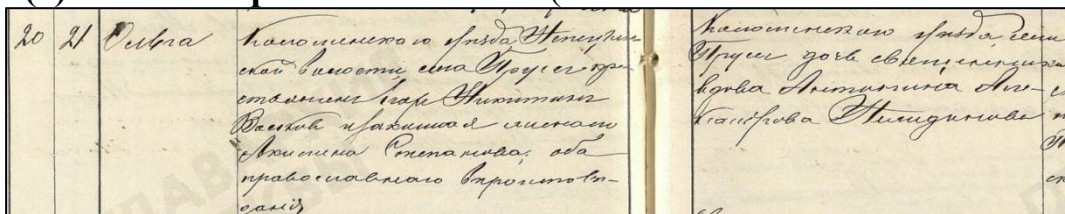 20 21 Ольга
Коломенскаго уѣзда Непецин
ской волости села Пруссъ кре
стьянинъ Егоръ Никитинъ
Волковъ и законная жена его
Акилина Степанова. оба
православнаго вѣроисповѣ-
данія
Коломенскаго уѣзда села
Пруссъ дочь священника
вдова Антонина Але-
ксандрова